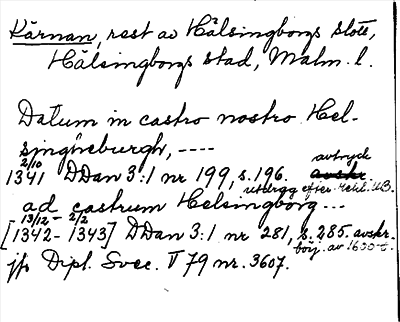 Kärnan, rest av Hälsingborgs slott,
Hälsingborgs stad, Malm. l.
Datum in castro nostro Hel-
singineburgh, ----
2/10 avtryck
1341 DDan 3:1 nr 199, s. 196. avskr.
utdrag efter
ad castrum Helsingborg ...
13/12 - 2/2
[1342 - 1343] DDan 3:1 nr 281, s. 285. avskr.
börj. av 1600-t.
jfr Dipl. Svec. V 79 nr. 3607.